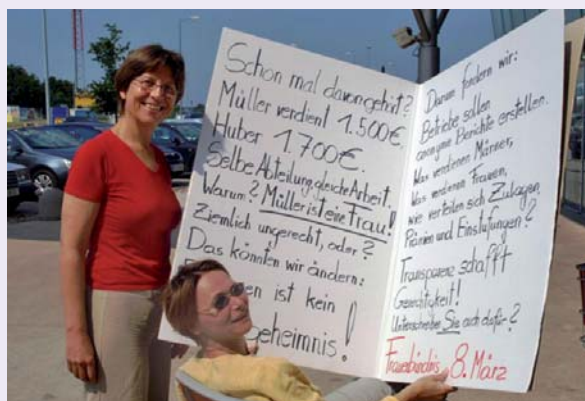 Schon mal davon gehört?
Müller verdient 1.500€.
Huber 1.700€.
Selbe Abteilung, gleiche Arbeit.
Warum? Müller ist eine Frau!
Ziemlich ungerecht, oder?
Das könnten wir ändern:
ist kein
Geheimnis!
Darum fordern wir:
Betriebe sollen
anonyme Berichte erstellen.
Was verdienen Männer,
Was verdienen Frauen,
wie verteilen sich Zulagen,
Prämien und Einstufungen?
Transparenz schafft
Gerechtigkeit!
Unterschreiben Sie auch dafür?
Frauenbündnis 8. März